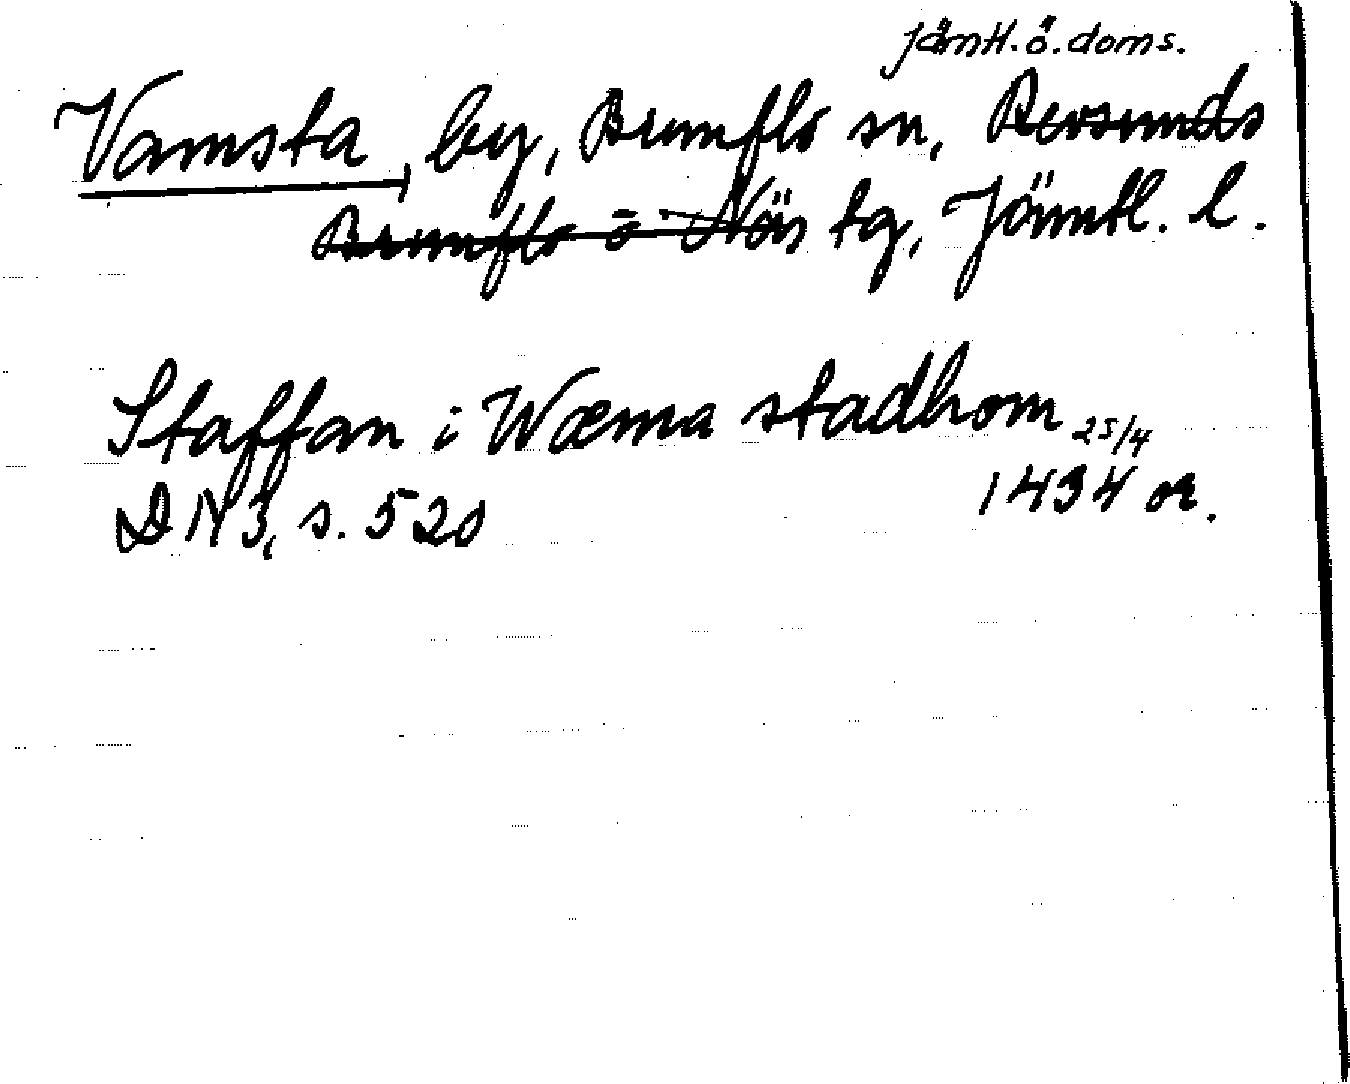 Jämtl. ö. doms.
Vamsta, by, Brunflo sn, Revsunds
Brunflo o Näs tg, Jämtl. l.
Staffan i Wæma stadhom 25/4
DN 3, s. 520 1434 or.